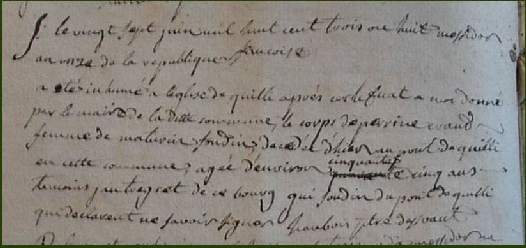 Le vingt sept juin mil huit cent trois ou huit messidor
an onze de la republique francoise
a été inhumé a leglise de quilli après certificat a nos donné
par le maire de la ditte commune, le corps de perrine
femme de maturin decedé d'hier au pont de quilli
en cette commune, agée d'environ cinquante cinq ans
temoins jan de ce bourg qui du pont de quilli
qui declarent ne savoir signer ptre desservant